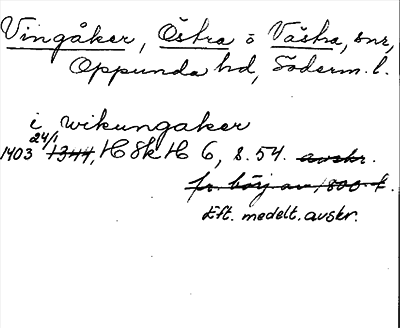 Vingåker, Östra o Västra, snr,
Oppunda hd, Söderm. l.
i wikungaker
24/1
1403 1344, HSkH 6, s. 54. avskr.
fr. börj av 1800-t.
Eft. medelt. avskr.